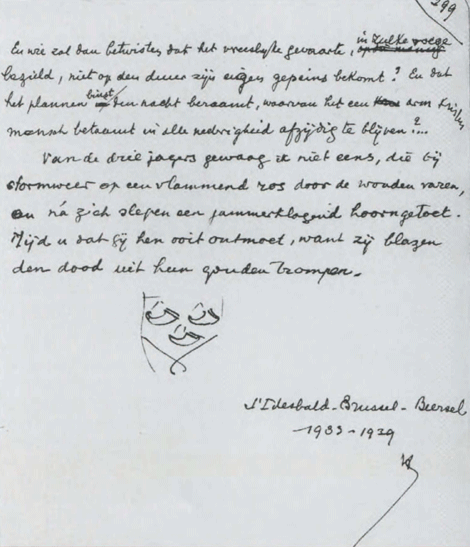 299
En wie zal dan betwisten dat het vreeselijke gevaarte, in zulke voege
bezield, niet op den duur zijn eigen gepeins bekomt? En dat
het plannen binst den nacht beraamt, waarvan het een arm
mensch betaamt in alle nedrigheid afzijdig te blijven?...
Van de drie jagers gewaag ik niet eens, die bij
stormweer op een vlammend ros door de wouden varen,
en ná zich slepen een jammerklagend hoorngetoet.
Mijd u dat gij hen ooit ontmoet, want zij blazen
den dood uit hun gouden trompen.
St Idesbald - Brussel - Beersel
1933-1939